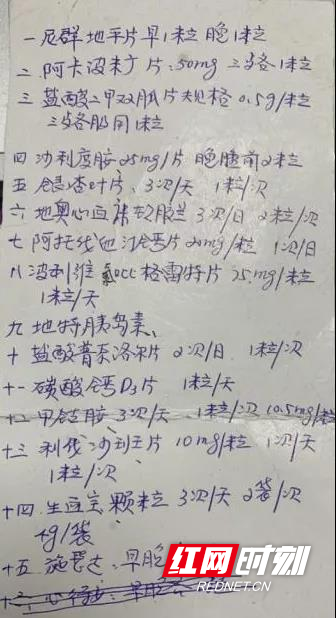 一 尼群地平片 早1粒 晚1粒
二. 阿卡波糖片: 50mg 三餐各1粒
三 盐酸二甲双胍片 规格 0.5g/粒
三餐各服用1粒
四 沙利度胺 25mg/片 晚睡前2粒
五 银杏叶片, 3次/天 1粒/次
六 地奥心血康软胶囊 3次/日 2粒/次
七 阿托伐他汀钙片 20mg/粒 1次/日
八 波利维 格雷特片 75mg/粒
1粒/天
九 地特胰岛素,
十 盐酸普萘洛尔片 2次/日 1粒/次
十一 碳酸钙D3片 1粒/天
十二 甲钴胺 3次/天 1粒/次 (0.5mg/
十三 利伐沙班片 10mg/粒 1次/天
1粒/次
十四 生血宝颗粒 3次/天 2袋/次
4g/袋
十五 施慧达, 早
红网时刻
REDNET.CN